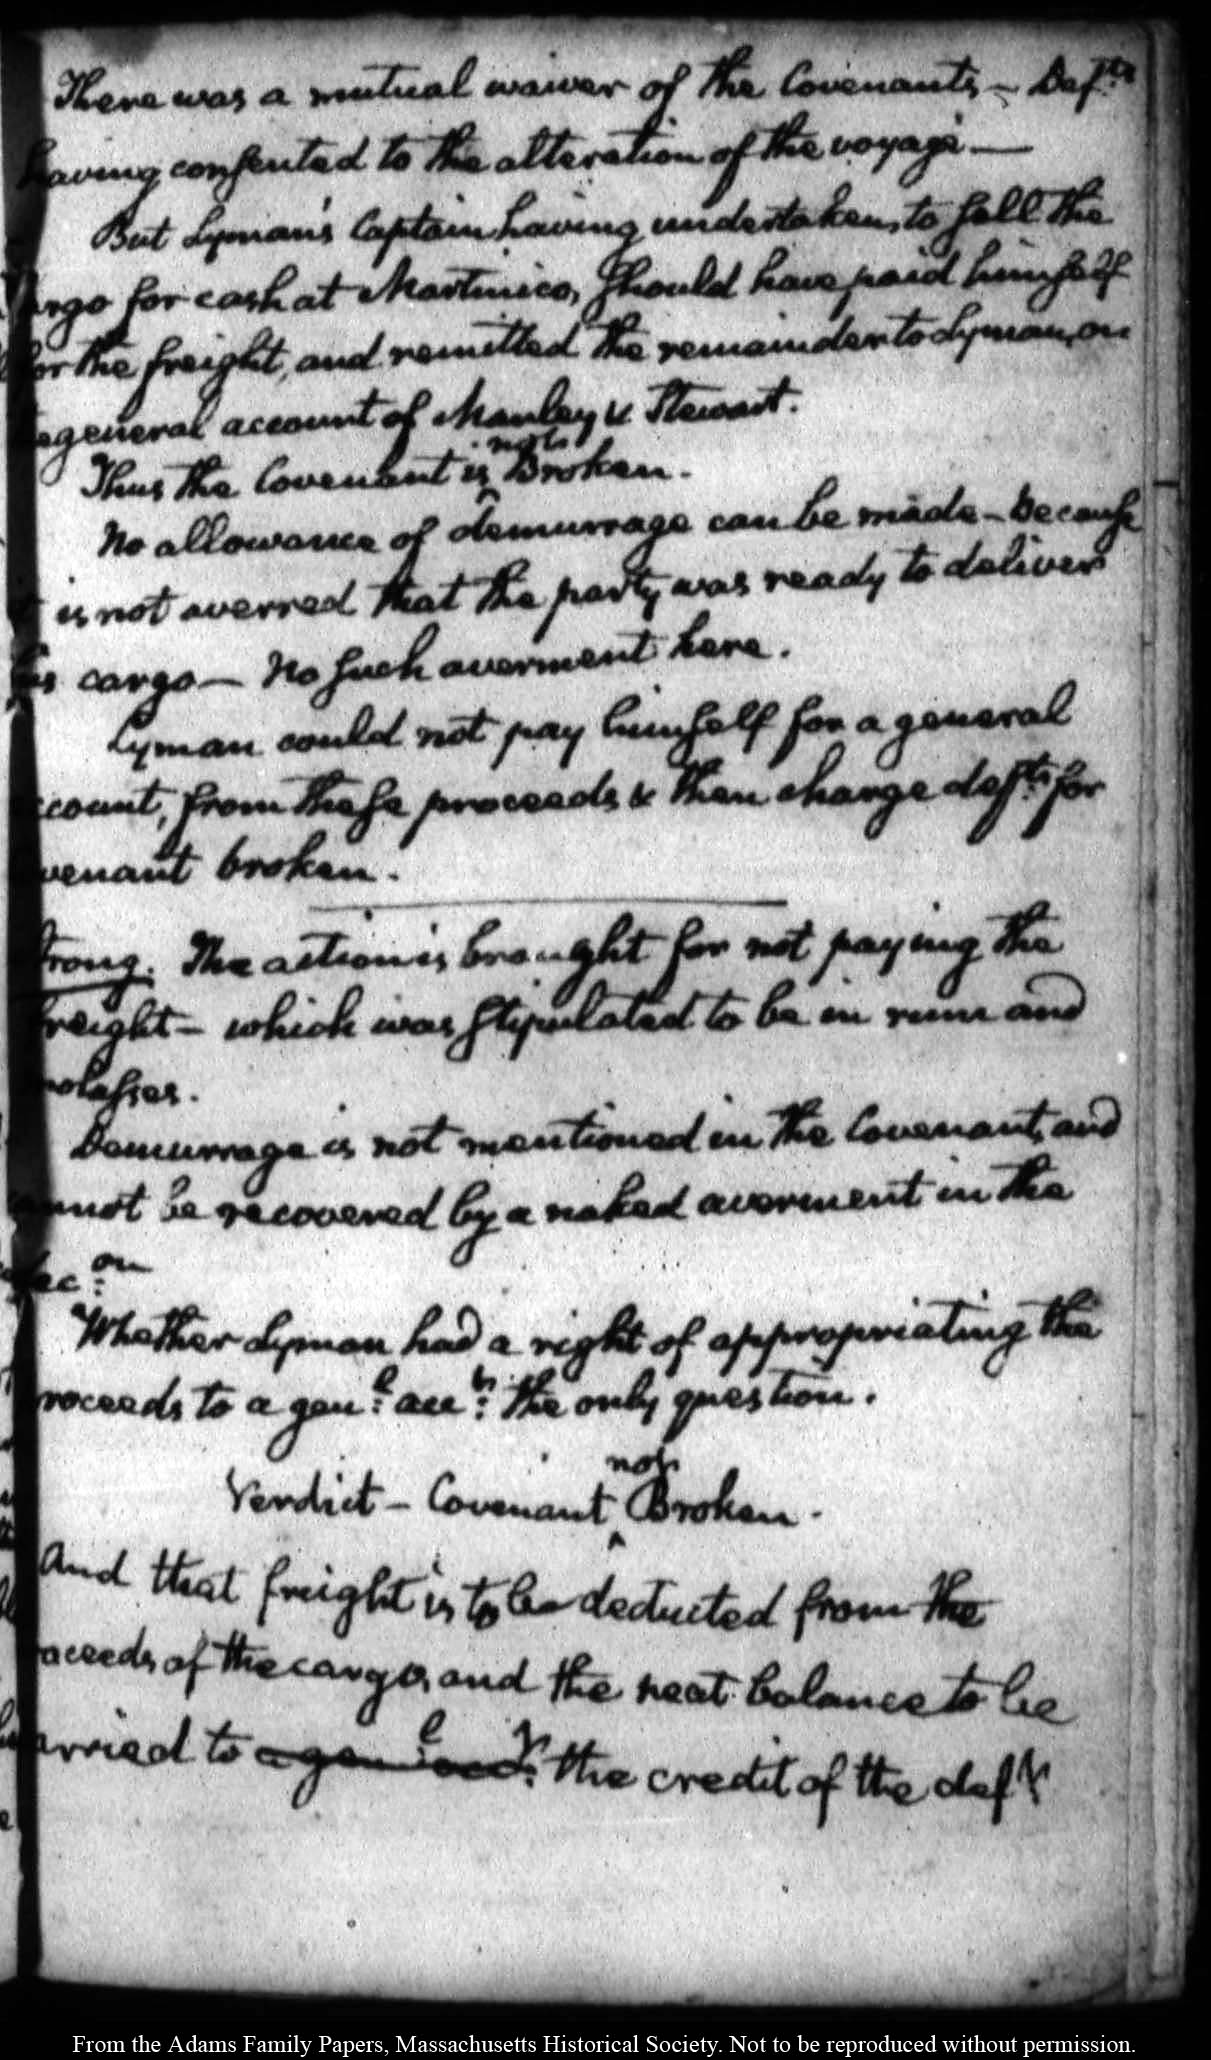 There was a mutual waiver of the Covenants – Def.ts
having consented to the alteration of the voyage —
But Lyman's Captain having undertaken, to sell the
argo for cash at Martinico, should have paid himself
for the freight, and remitted the remainder to Lyman, on
general account of Manley & Stewart.
not
Thus the Covenant is ^ Broken.
No allowance of demurrage can be made – because
t is not averred that the party was ready to deliver
his cargo — No such averment here.
Lyman could not pay himself for a general
ccount, from these proceeds & then charge def.ts for
venant broken.
trong. The action is brought for not paying the
freight – which was stipulated to be in rum and
molasses.
Demurrage is not mentioned in the Covenant, and
annot be recovered by a naked averment in the
dec:on
Whether Lyman had a right of appropriating the
roceeds to a gen:l acc:t the only question.
not
Verdict – Covenant ^ Broken.
And that freight is to be deducted from the
roceeds of the cargo, and the neat balance to be
arried to a gen:l acc:t the credit of the def.ts
From the Adams Family Papers, Massachusetts Historical Society. Not to be reproduced without permission.